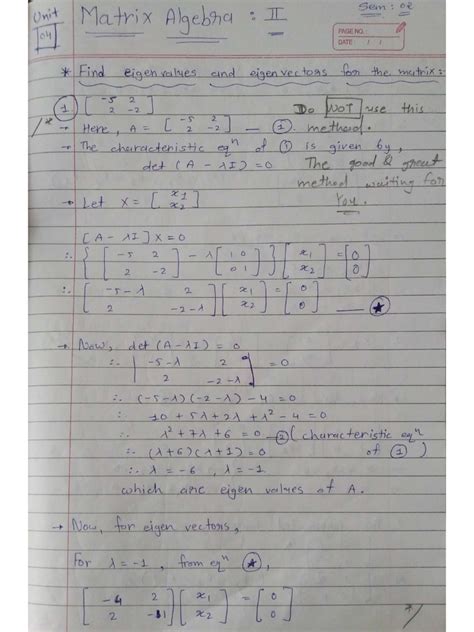 Unit 04
Matrix Algebra : II
Sem : 02
PAGE NO.:
DATE: / /
* Find eigenvalues and eigenvectors for the matrix :
① [ -5 2 ; 2 -2 ]
Do NOT use this method.
→ Here, A = [ -5 2 ; 2 -2 ] — ①
→ The characteristic eqⁿ of ① is given by,
det (A - λI) = 0
The good & great method waiting for you.
→ Let X = [ x1 ; x2 ]
[A - λI] X = 0
∴ { [ -5 2 ; 2 -2 ] - λ [ 1 0 ; 0 1 ] } [ x1 ; x2 ] = [ 0 ; 0 ]
∴ [ -5-λ 2 ; 2 -2-λ ] [ x1 ; x2 ] = [ 0 ; 0 ] — ★
→ Now, det (A - λI) = 0
∴ | -5-λ 2 ; 2 -2-λ | = 0
∴ (-5-λ) (-2-λ) - 4 = 0
∴ 10 + 5λ + 2λ + λ² - 4 = 0
∴ λ² + 7λ + 6 = 0 — ② (characteristic eqⁿ of ①)
∴ (λ+6) (λ+1) = 0
∴ λ = -6, λ = -1
which are eigen values of A.
→ Now, for eigen vectors,
For λ = -1, from eqⁿ ★,
[ -4 2 ; 2 -1 ] [ x1 ; x2 ] = [ 0 ; 0 ]